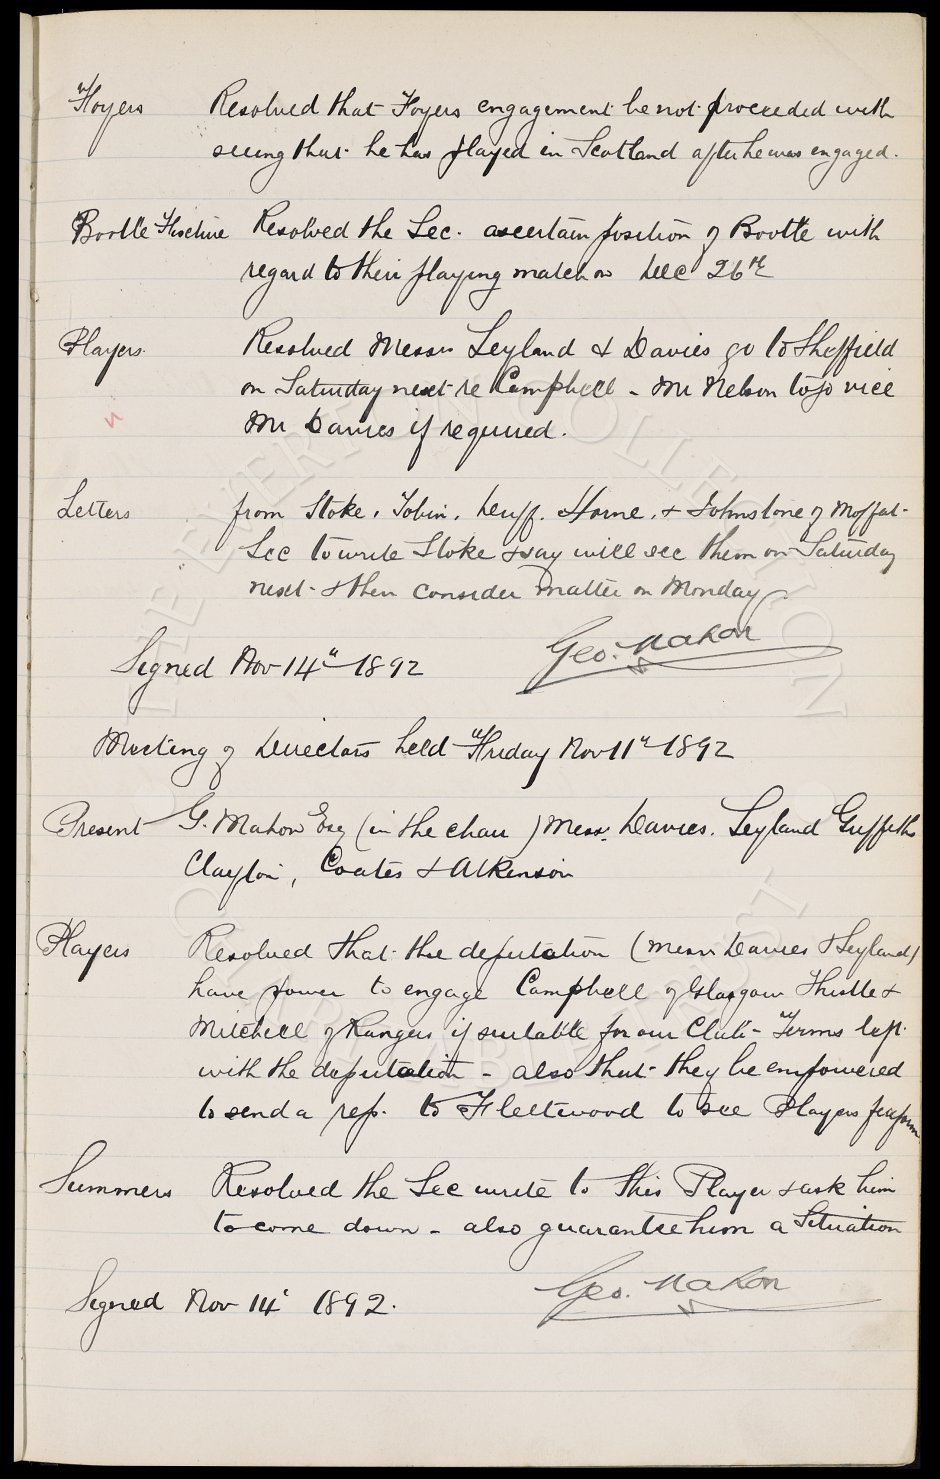 Foyers Resolved that Foyers engagement be not proceeded with
seeing that he has played in Scotland after he was engaged.
Bootle Fixture Resolved the Sec. ascertain position of Bootle with
regard to their playing match on Dec 26th
Players Resolved Messrs Leyland & Davies go to Sheffield
on Saturday next re Campbell - Mr Nelson to go vice
Mr Davies if required.
Letters from Stoke, Tobin, Duff, Horne, & Johnstone of Moffat -
Sec to write Stoke & say will see them on Saturday
next & then consider matter on Monday
Geo. Mahon
Signed Nov 14th 1892
Meeting of Directors held Friday Nov 11th 1892
Present G. Mahon Esq (in the chair) Messrs Davies. Leyland Griffiths
Clayton, Coates & Atkinson
Players Resolved that the deputation (Messrs Davies & Leyland)
have power to engage Campbell of Glasgow Thistle &
Mitchell of Rangers if suitable for our Club - Terms left
with the deputation - also that they be empowered
to send a rep. to Fleetwood to see Players perform
Summers Resolved the Sec write to this Player & ask him
to come down - also guarantee him a Situation
Signed Nov 14th 1892. Geo. Mahon
THE EVERTON COLLECTION
CHARITABLE TRUST